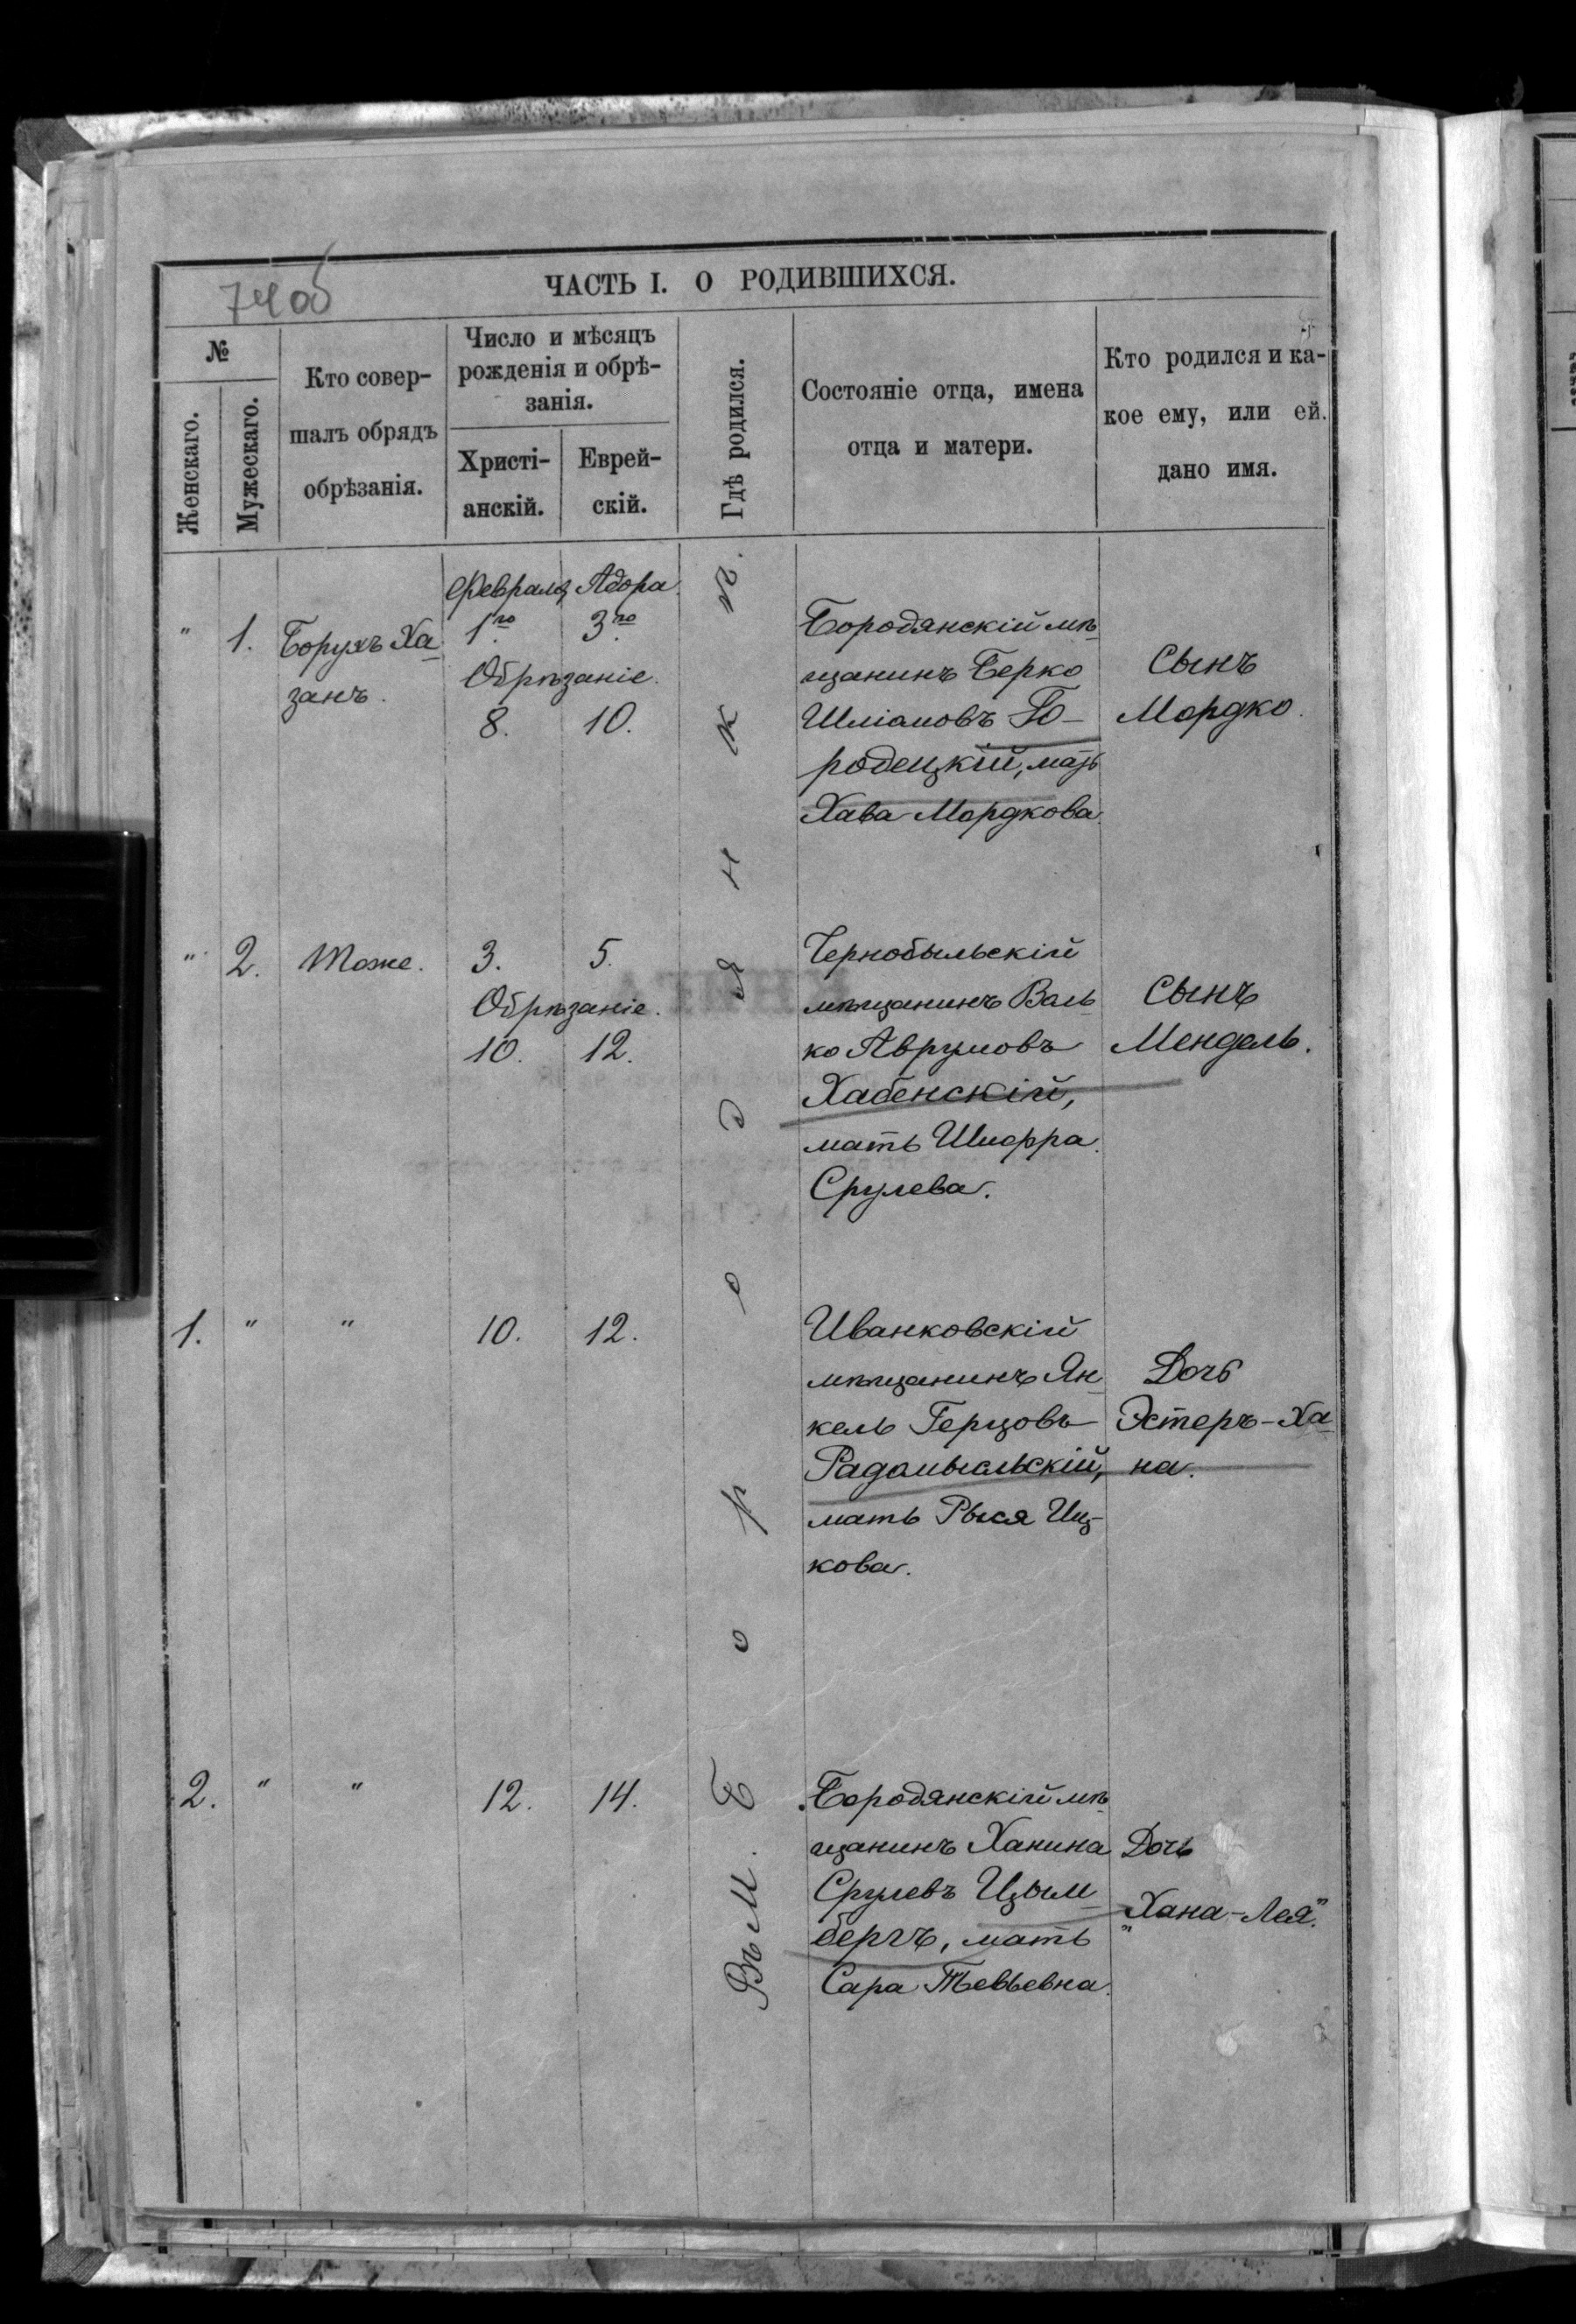 74 об
ЧАСТЬ I. О РОДИВШИХСЯ.
№
Женскаго.
Мужескаго.
Кто совер-
шалъ обрядъ
обрѣзанія.
Число и мѣсяцъ
рожденія и обрѣ-
занія.
Христі-
анскій.
Еврей-
скій.
Гдѣ родился.
Состояніе отца, имена
отца и матери.
Кто родился и ка-
кое ему, или ей.
дано имя.
Въ М. Бородянки.
" 1. Борухъ Ха
занъ.
Февраля Адора
1го 3го
Обрѣзаніе.
8. 10.
Бородянскій мѣ
щанинъ Берко
Шліомовъ Го-
родецкій, мать
Хава Мордкова.
Сынъ
Мордко.
" 2. Тоже. 3. 5.
Обрѣзаніе.
10. 12.
Чернобыльскій
мѣщанинъ Валь
ко Аврумовъ
Хабенскій,
мать
Срулева.
Сынъ
Мендель.
1. " " 10. 12.
Иванковскій
мѣщанинъ Ян
кель Герцовъ
Радомысльскій,
мать Рыся Иц-
кова.
Дочь
Эстеръ-Ха
на.
2. " " 12. 14.
Бородянскій мѣ
щанинъ Ханина
Срулевъ Цым
бергъ, мать
Сара Тевьевна.
Дочь
"Хана-Лея".